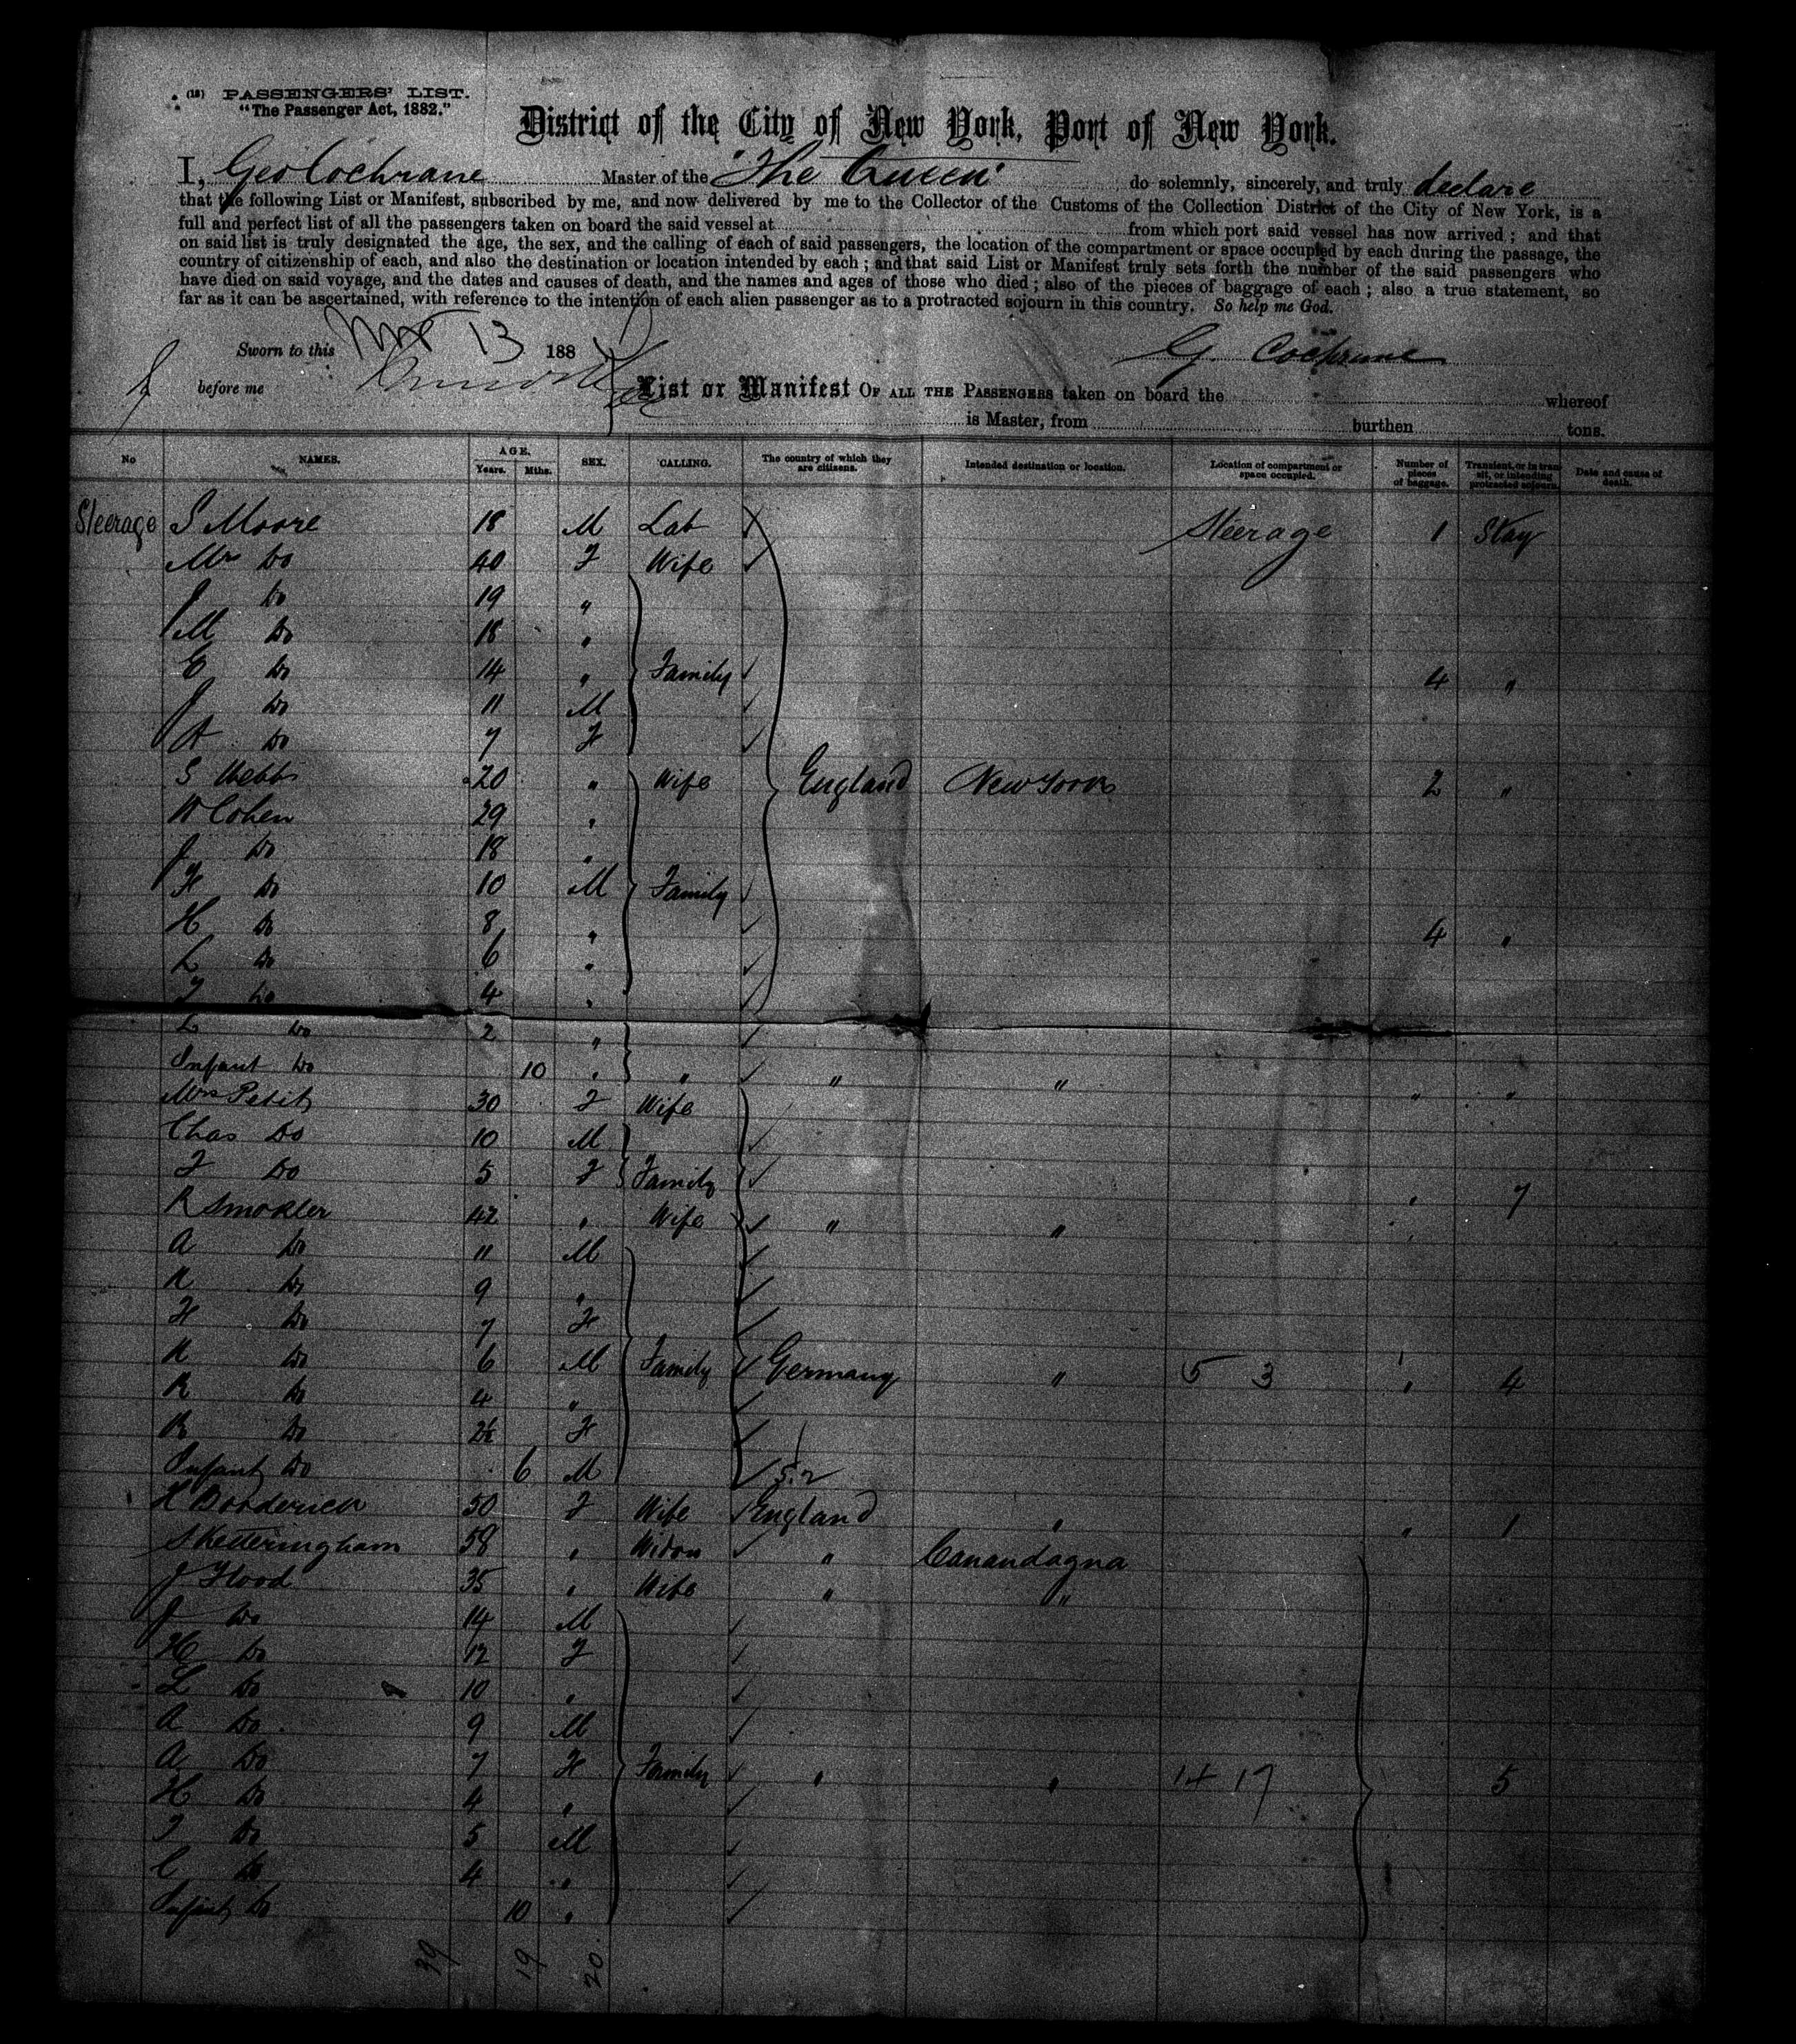 (12) PASSENGERS' LIST.
"The Passenger Act, 1882."
District of the City of New York, Port of New York.
I, Geo Cochrane Master of the "The Queen" do solemnly, sincerely, and truly declare
that the following List or Manifest, subscribed by me, and now delivered by me to the Collector of the Customs of the Collection District of the City of New York, is a
full and perfect list of all the passengers taken on board the said vessel at from which port said vessel has now arrived; and that
on said list is truly designated the age, the sex, and the calling of each of said passengers, the location of the compartment or space occupied by each during the passage, the
country of citizenship of each, and also the destination or location intended by each; and that said List or Manifest truly sets forth the number of the said passengers who
have died on said voyage, and the dates and causes of death, and the names and ages of those who died; also of the pieces of baggage of each; also a true statement, so
far as it can be ascertained, with reference to the intention of each alien passenger as to a protracted sojourn in this country. So help me God.
Sworn to this 13 188
G. Cochrane
before me
List or Manifest OF ALL THE PASSENGERS taken on board the whereof
is Master, from burthen tons.
No NAMES. AGE. Years. Mths. SEX. CALLING. The country of which they are citizens. Intended destination or location. Location of compartment or space occupied. Number of pieces of baggage. Transient, or in transit, or intending protracted sojourn. Date and cause of death.
Steerage S Moore 18 M Lab Steerage 1 Stay
Mrs Do 40 F Wife
J Do 19 "
M Do 18 "
E Do 14 " Family 4 "
J Do 11 M
A Do 7 F
S Webb 20 " Wife England New York 2 "
W Cohen 29 "
J Do 18 "
F Do 10 M Family
H Do 8 " 4 "
L Do 6 "
F Do 4 "
L Do 2 "
Infant Do 10 " " " " " "
Mrs Petit 30 F Wife
Chas Do 10 M
F Do 5 F Family " 7
R Smokler 42 " Wife " "
A Do 11 M
K Do 9 "
F Do 7 F
K Do 6 M Family Germany " 5 3 " 4
R Do 4 "
R Do 2½ F
Infant Do 6 M 5.2
50 F Wife England " " 1
S Ketteringham 58 " Widow " Canandagna
J Flood 35 " Wife " "
J Do 14 M
H Do 12 F
L Do 10 "
A Do 9 M
A Do 7 F Family " " 14 17 5
H Do 4 "
F Do 5 M
C Do 4 "
Infant Do 10 "
39 19 20